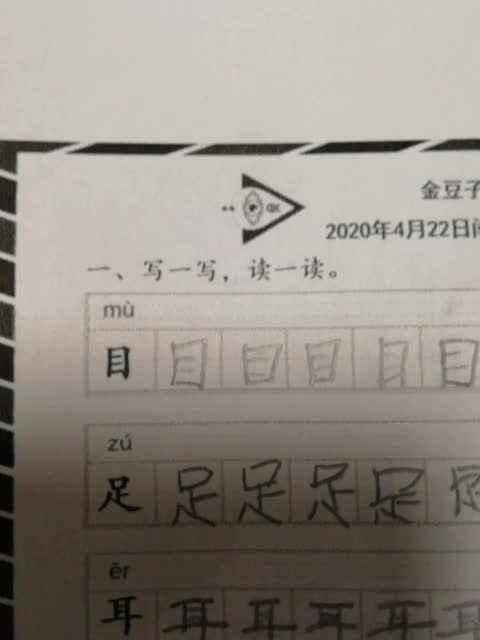 金豆子
2020年4月22日
一、写一写，读一读。
mù
目 目 目 目 目 目
zú
足 足 足 足 足 足
ěr
耳 耳 耳 耳 耳 耳